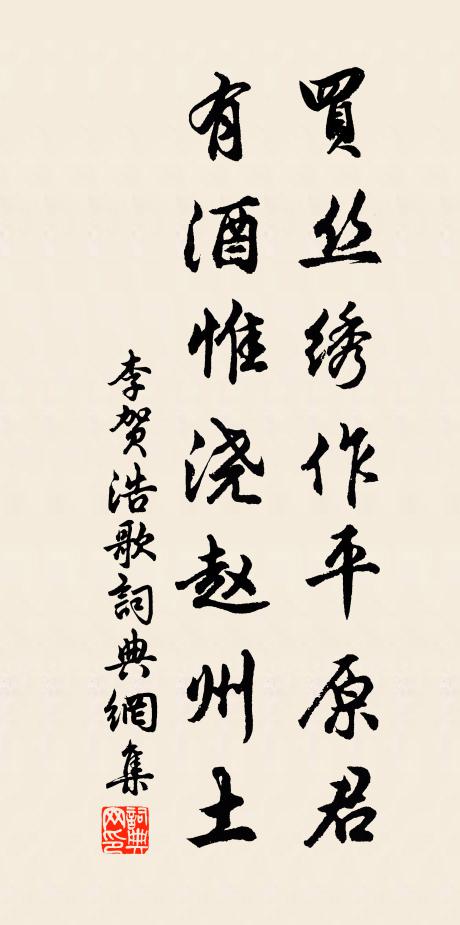 買丝绣作平原君
有酒惟浇赵州土
李贺浩歌詞典網集
詞典网印